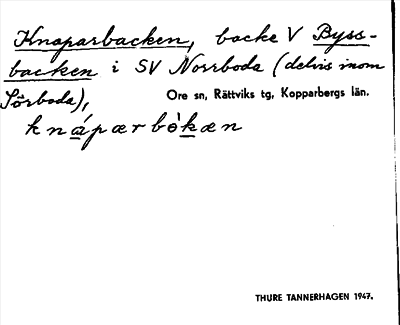 Knoparbacken, backe V Byss-
backen i SV Norrboda (delvis inom
Sörboda),
Ore sn, Rättviks tg, Kopparbergs län.
kná̱pærbò̱kæn
THURE TANNERHAGEN 1947.